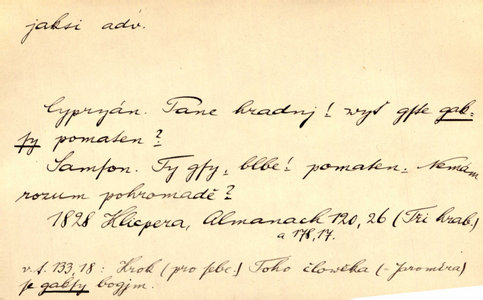 jaksi adv.
Cypryán. Pane hradnj! wyš gste gak=
sy pomaten?
Samson. Ty gsy, blbe! pomaten. Nemám
rozum pohromadě?
1828 Klicpera, Almanach 120, 26 (Tři hrab.)
a 178,17.
v. s. 133, 18: Krok (pro sebe.) Toho člowěka (-Jaromíra)
se gaksy bogjm.